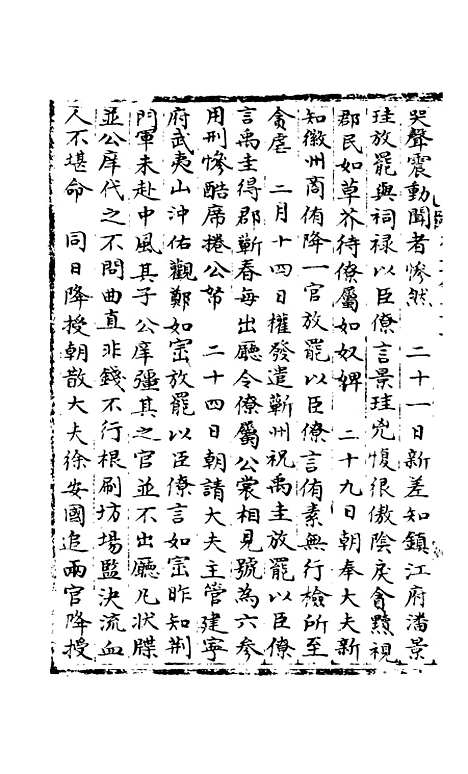 哭聲震動聞者慘然　二十一日新差知鎮江府潘景
珪放罷與祠祿以臣僚言景珪兇愎很傲陰戾貪黷視
郡民如草芥待僚屬如奴婢　二十九日朝奉大夫新
知徽州商侑降一官放罷以臣僚言侑素無行檢所至
貪虐　二月十四日權發遣蘄州祝禹主放罷以臣僚
言禹主得郡蘄春每出廳令僚屬公裳相見號為六參
用刑慘酷席捲公帑　二十四日朝請大夫主管建寧
府武夷山沖佑觀鄭如崈放罷以臣僚言如崈昨知荆
門軍未赴中風其子公庠彊其之官並不出廳凡狀牒
並公庠代之不問曲直非錢不行根刷坊場監決流血
人不堪命　同日降授朝散大夫徐安國追兩官降授